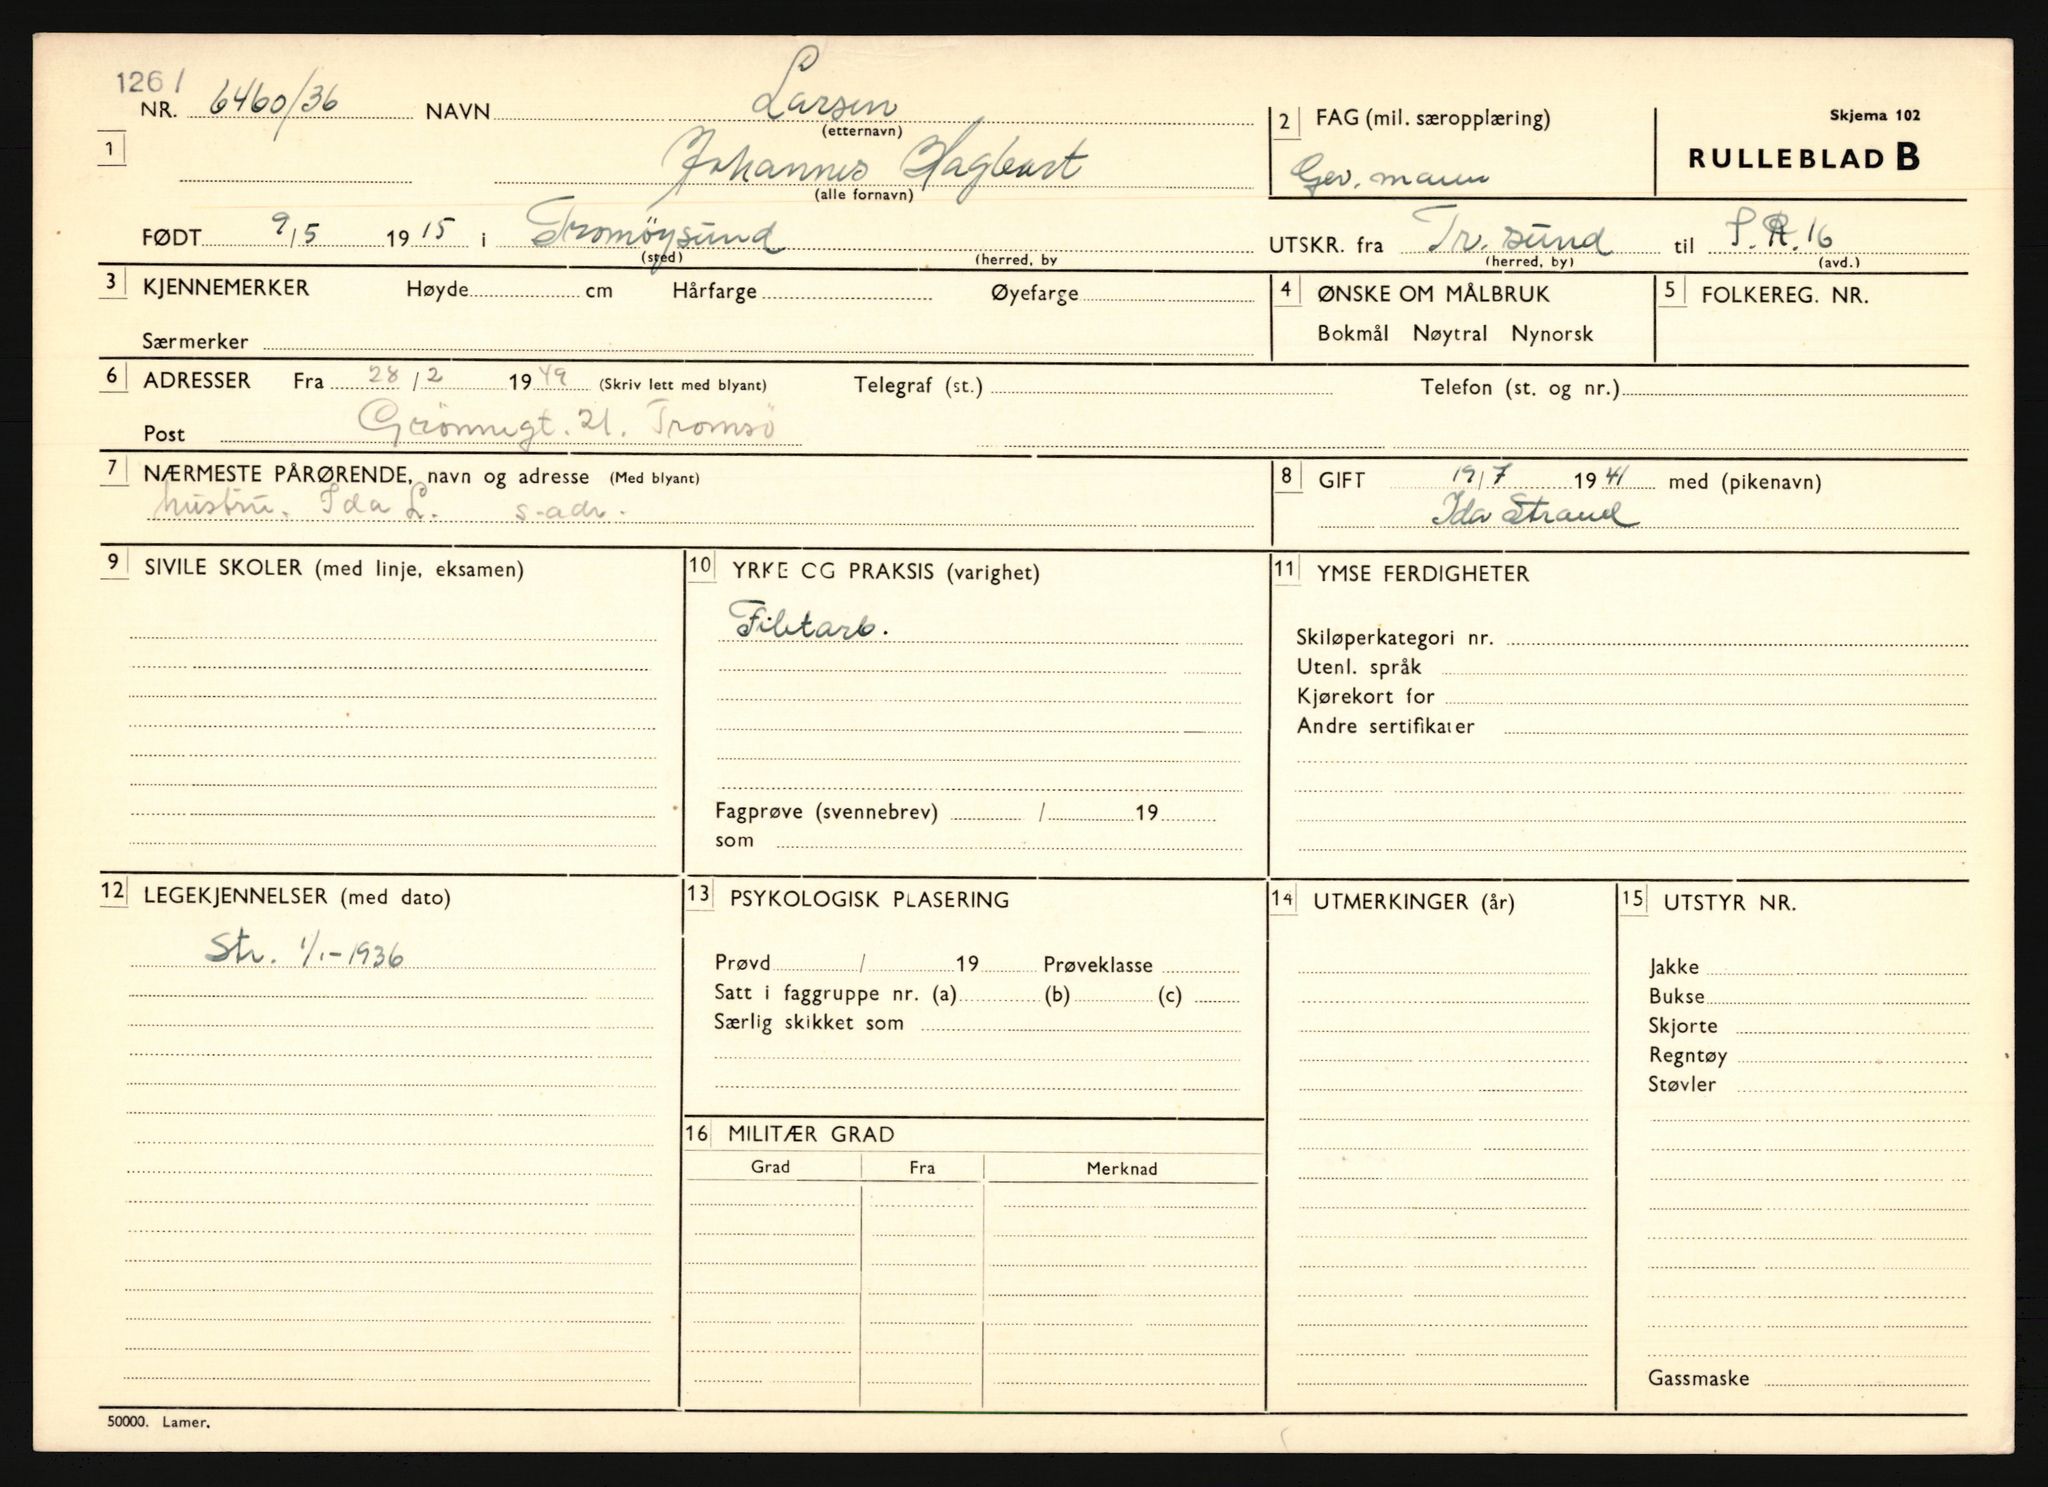 1261
NR. 6460/36 NAVN Larsen
(etternavn)
2 FAG (mil. særopplæring)
Skjema 102
1
Johannes Hagbart
(alle fornavn)
Gev. mann
RULLEBLAD B
FØDT 9/5 1915 i Tromöysund
(sted) (herred, by
UTSKR. fra Tr. sund til I.R. 16
(herred, by) (avd.)
3 KJENNEMERKER Høyde cm Hårfarge Øyefarge
Særmerker
4 ØNSKE OM MÅLBRUK
Bokmål Nøytral Nynorsk
5 FOLKEREG. NR.
6 ADRESSER Fra 28/2 1949 (Skriv lett med blyant) Telegraf (st.) Telefon (st. og nr.)
Post Grönnegt. 21. Tromsö
7 NÆRMESTE PÅRØRENDE, navn og adresse (Med blyant)
hustru. Ida L. s. adr.
8 GIFT 19/7 1941 med (pikenavn)
Ida Strand
9 SIVILE SKOLER (med linje, eksamen)
10 YRKE OG PRAKSIS (varighet)
Filetarb.
Fagprøve (svennebrev) / 19
som
11 YMSE FERDIGHETER
Skiløperkategori nr.
Utenl. språk
Kjørekort for
Andre sertifikater
12 LEGEKJENNELSER (med dato)
Str. 1/1-1936
13 PSYKOLOGISK PLASERING
Prøvd / 19 Prøveklasse
Satt i faggruppe nr. (a) (b) (c)
Særlig skikket som
14 UTMERKINGER (år)
15 UTSTYR NR.
Jakke
Bukse
Skjorte
Regntøy
Støvler
Gassmaske
16 MILITÆR GRAD
Grad Fra Merknad
50000. Lamer.